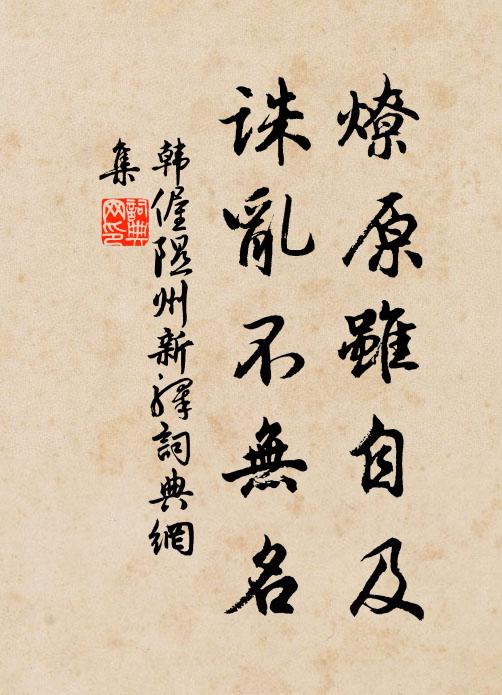 燎原雖自及
誅亂不無名
韓偓隰州新驛詞典網
集
詞典
网印